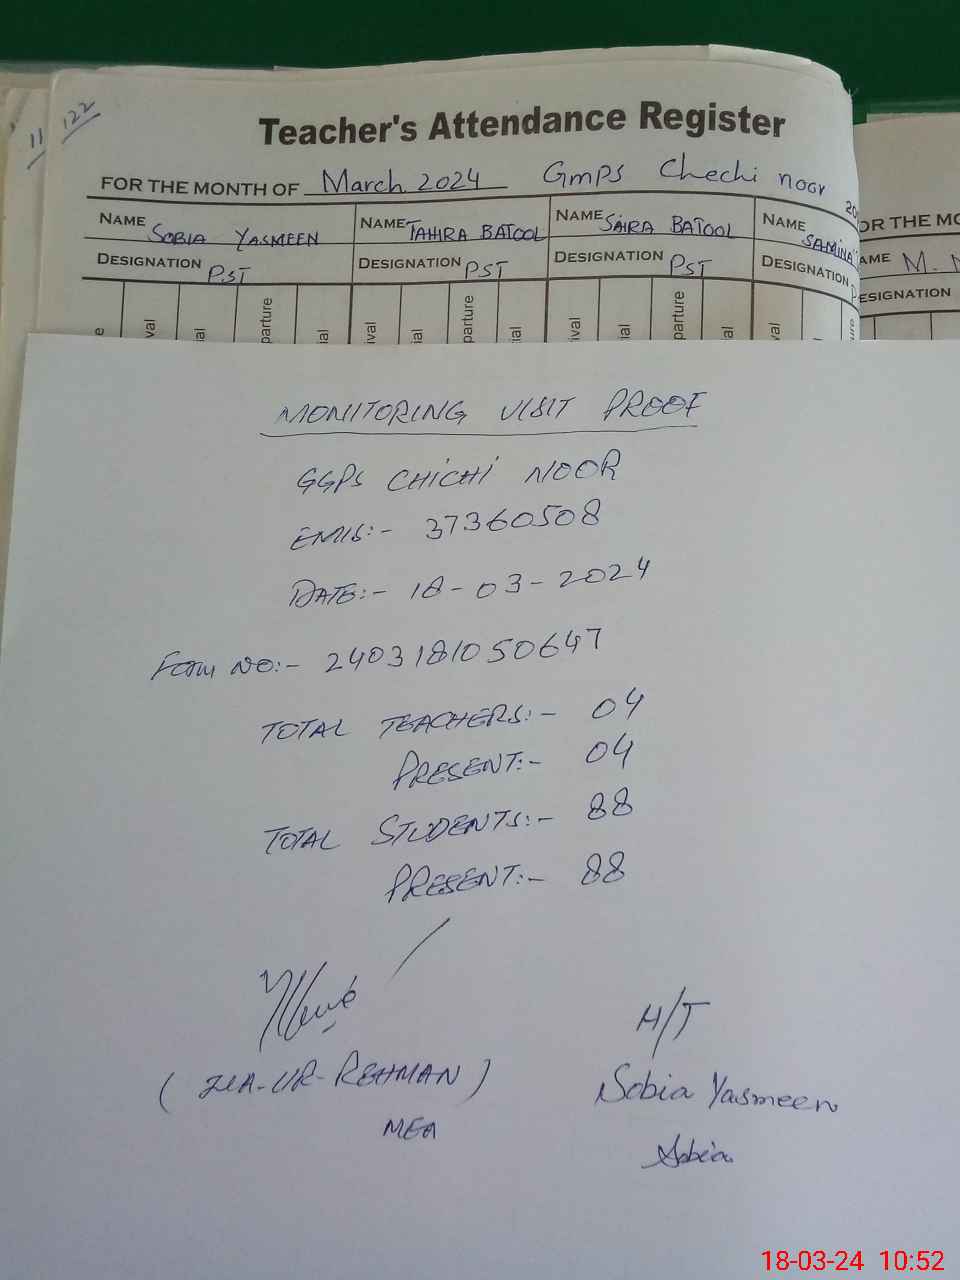 11 122
Teacher's Attendance Register
FOR THE MONTH OF March 2024 GMPS Chechi noor
NAME SOBIA YASMEEN NAME TAHIRA BATOOL NAME SAIRA BATOOL NAME SAMINA
DESIGNATION PST DESIGNATION PST DESIGNATION PST DESIGNATION P
val ial parture ial ival ial parture ial ival ial parture ial val
OR THE MO
AME M.
ESIGNATION
MONITORING VISIT PROOF
GGPS CHICHI NOOR
EMIS:- 37360508
DATE:- 18-03-2024
Form NO:- 2403181050647
TOTAL TEACHERS:- 04
PRESENT:- 04
TOTAL STUDENTS:- 88
PRESENT:- 88
H/T
(ZIA-UR-REHMAN) Sobia Yasmeen
MEA Sobia
18-03-24 10:52